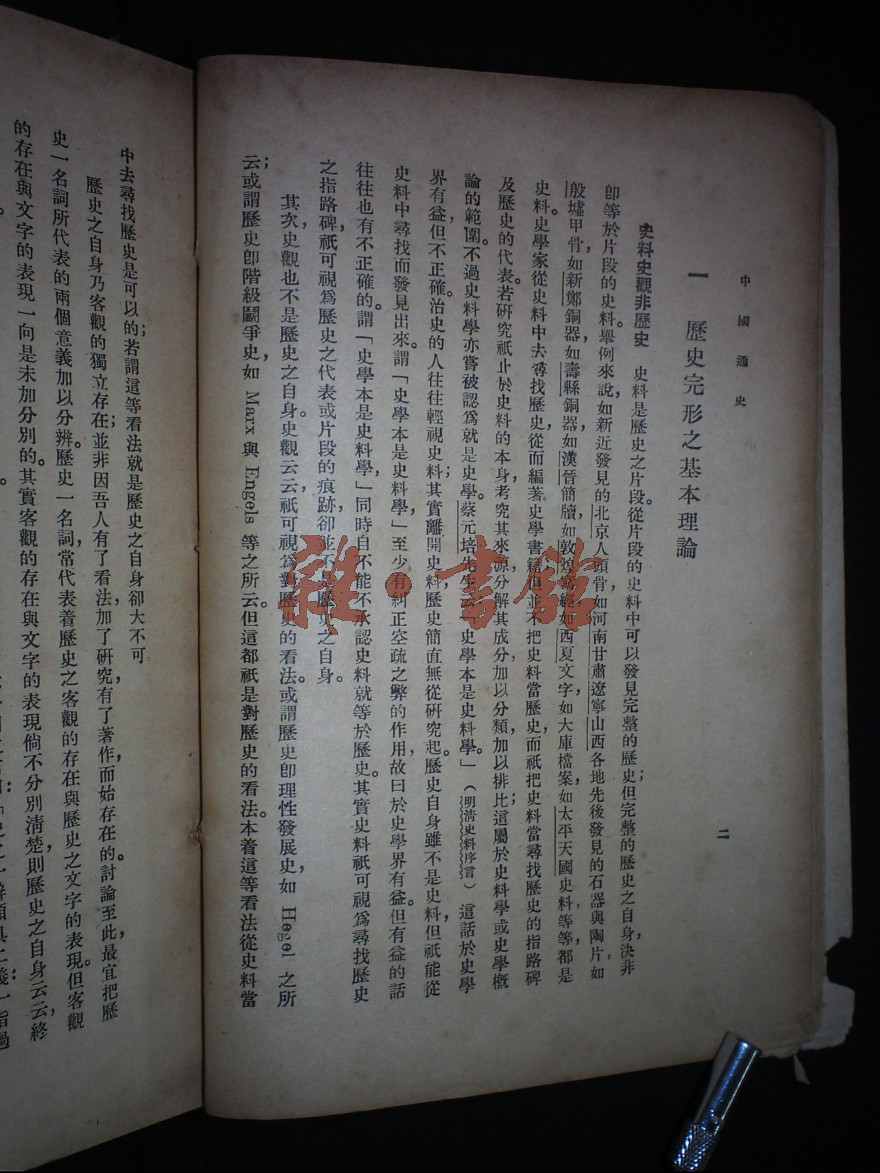 中國通史
二
一 歷史完形之基本理論
史料史觀非歷史 史料是歷史之片段。從片段的史料中可以發見完整的歷史；但完整的歷史之自身，決非
即等於片段的史料。舉例來說，如新近發見的北京人頭骨，如河南甘肅遼寧山西各地先後發見的石器與陶片，如
殷墟甲骨，如新鄭銅器，如壽縣銅器，如漢晉簡牘，如敦煌寫經，如西夏文字，如大庫檔案，如太平天國史料等等，都是
史料。史學家從史料中去尋找歷史，從而編著史學書籍，但並不把史料當歷史，而祇把史料當尋找歷史的指路碑
及歷史的代表。若研究祇止於史料的本身，考究其來源，分解其成分，加以分類，加以排比；這屬於史料學或史學概
論的範圍。不過史料學亦嘗被認為就是史學。蔡元培先生云：「史學本是史料學。」（明清史料序言）這話於史學
界有益，但不正確。治史的人往往輕視史料；其實離開史料，歷史簡直無從研究起。歷史自身雖不是史料，但祇能從
史料中尋找而發見出來。謂「史學本是史料學，」至少有糾正空疏之弊的作用，故曰於史學界有益。但有益的話
往往也有不正確的。謂「史學本是史料學，」同時自不能不承認史料就等於歷史。其實史料祇可視為尋找歷史
之指路碑，祇可視為歷史之代表或片段的痕跡，卻並不是歷史之自身。
其次，史觀也不是歷史之自身。史觀云云，祇可視為對歷史的看法。或謂歷史即理性發展史，如 Hegel 之所
云；或謂歷史即階級鬭爭史，如 Marx 與 Engels 等之所云。但這都祇是對歷史的看法。本着這等看法從史料當
中去尋找歷史是可以的；若謂這等看法就是歷史之自身，卻大不可
歷史之自身乃客觀的獨立存在；並非因吾人有了看法，加了研究，有了著作，而始存在的。討論至此，最宜把歷
史一名詞所代表的兩個意義加以分辨。歷史一名詞，常代表着歷史之客觀的存在與歷史之文字的表現。但客觀
的存在與文字的表現一向是未加分別的。其實客觀的存在與文字的表現倘不分別清楚，則歷史之自身云云，終
雜·書館